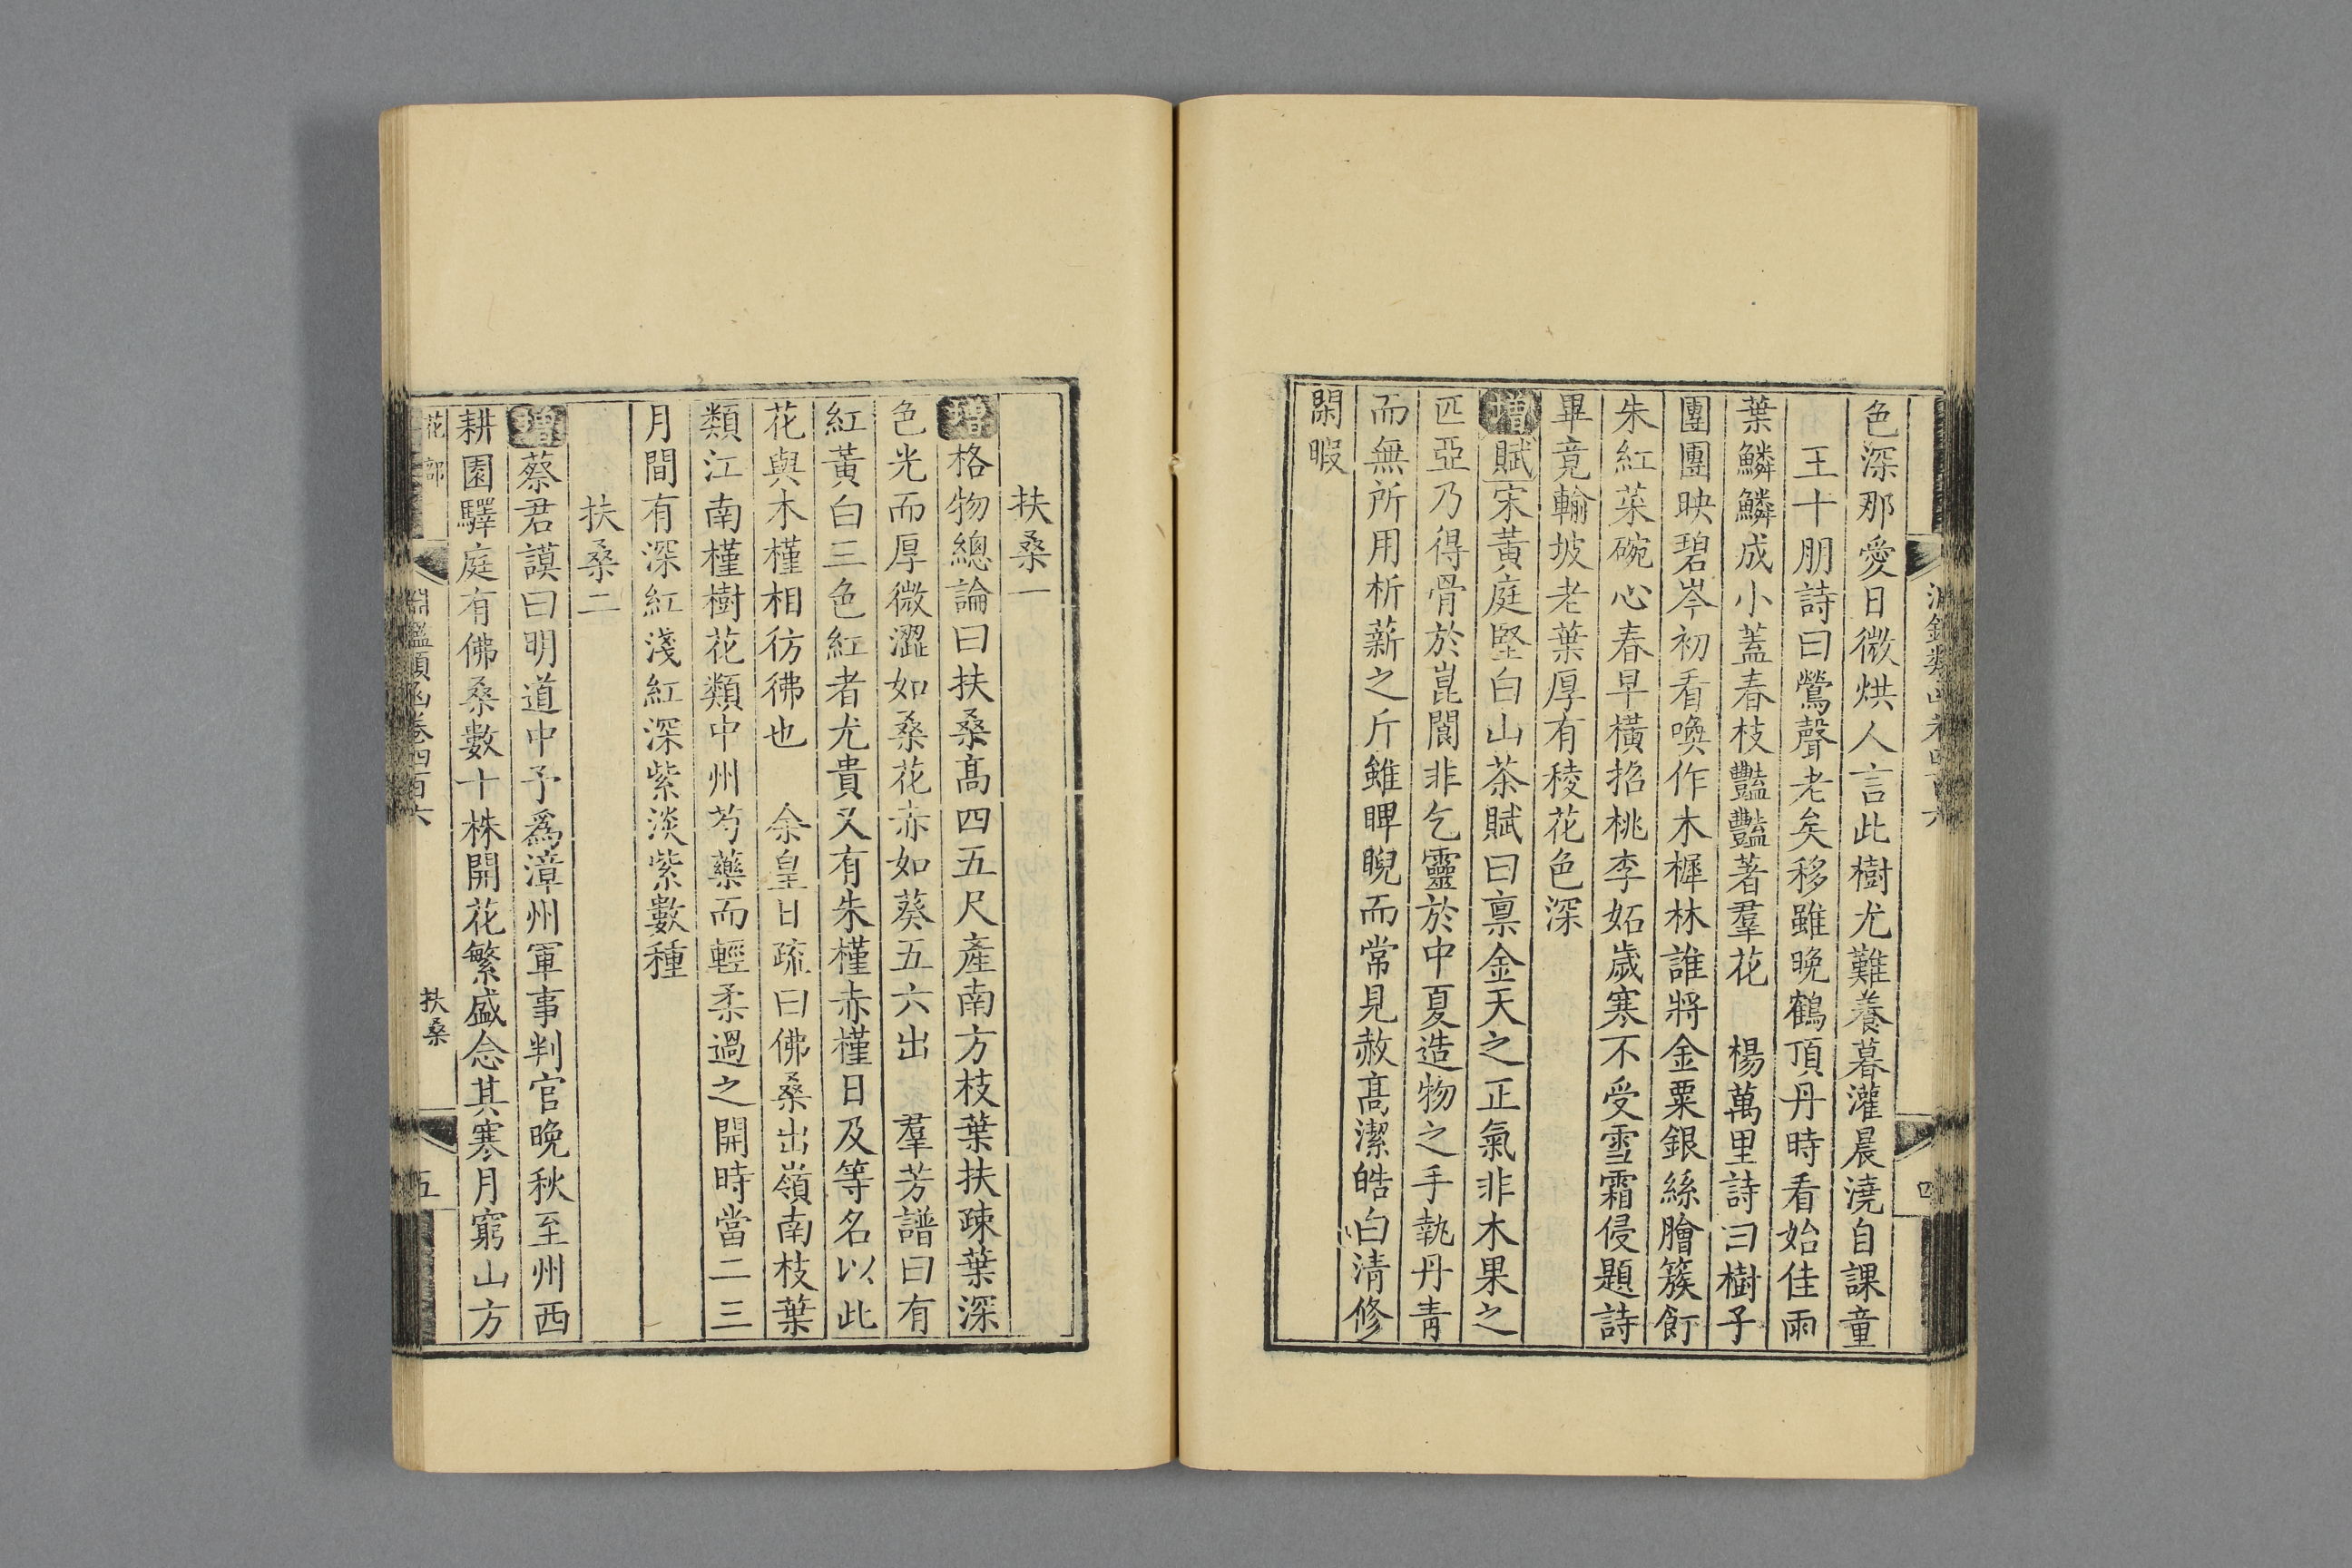 色深那愛日微烘人言此樹尤難養暮灌晨澆自課童
王十朋詩曰鶯聲老矣移雖晚鶴頂丹時看始佳雨
葉鱗鱗成小蓋春枝豔豔著羣花　楊萬里詩曰樹子
團團映碧岑初看喚作木樨林誰將金粟銀絲膾簇飣
朱紅菜碗心春早橫招桃李妬歲寒不受雪霜侵題詩
畢竟輸坡老葉厚有稜花色深
增賦宋黃庭堅白山茶賦曰禀金天之正氣非木果之
匹亞乃得骨於崑閬非乞靈於中夏造物之手執丹青
而無所用析薪之斤雖睥睨而常見赦高潔皓白清修
閑暇
四
扶桑一
增格物總論曰扶桑髙四五尺產南方枝葉扶疎葉深
色光而厚微澀如桑花赤如葵五六出　羣芳譜曰有
紅黃白三色紅者尤貴又有朱槿赤槿日及等名以此
花與木槿相彷彿也　余皇日疏曰佛桑出嶺南枝葉
類江南槿樹花類中州芍藥而輕柔過之開時當二三
月間有深紅淺紅深紫淡紫數種
扶桑二
增蔡君謨曰明道中予爲漳州軍事判官晚秋至州西
耕園驛庭有佛桑數十株開花繁盛念其寒月窮山方
花部
淵鑑類函卷四百六
扶桑
五